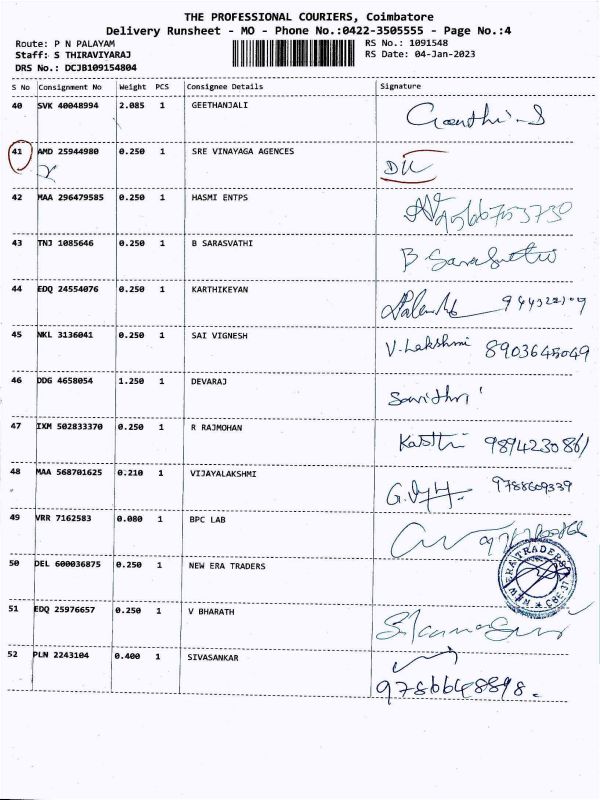 THE PROFESSIONAL COURIERS, Coimbatore
Delivery Runsheet - MO - Phone No.:0422-3505555 - Page No.:4
Route: P N PALAYAM RS No.: 1091548
Staff: S THIRAVIYARAJ RS Date: 04-Jan-2023
DRS No.: DCJB109154804
S No Consignment No Weight PCS Consignee Details Signature
40 SVK 40048994 2.085 1 GEETHANJALI
41 AMD 25944980 0.250 1 SRE VINAYAGA AGENCES
42 MAA 296479585 0.250 1 HASMI ENTPS 9566753730
43 TNJ 1085646 0.250 1 B SARASVATHI B Sarasvathi
44 EDQ 24554076 0.250 1 KARTHIKEYAN
45 NKL 3136041 0.250 1 SAI VIGNESH V. Lakshmi 8903645049
46 DDG 4658054 1.250 1 DEVARAJ Savithri
47 IXM 502833370 0.250 1 R RAJMOHAN 9894230861
48 MAA 568701625 0.210 1 VIJAYALAKSHMI 9788609339
49 VRR 7162583 0.080 1 BPC LAB
50 DEL 600036875 0.250 1 NEW ERA TRADERS NEW ERA TRADERS
51 EDQ 25976657 0.250 1 V BHARATH
52 PLN 2243104 0.400 1 SIVASANKAR
9786648898.